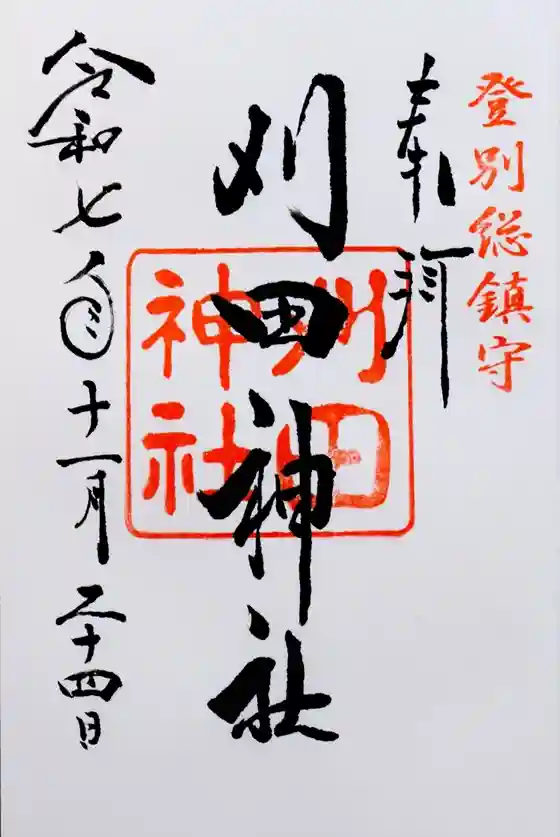 登別総鎮守
奉拝
刈田神社
刈田
神社
令和七年十一月二十四日